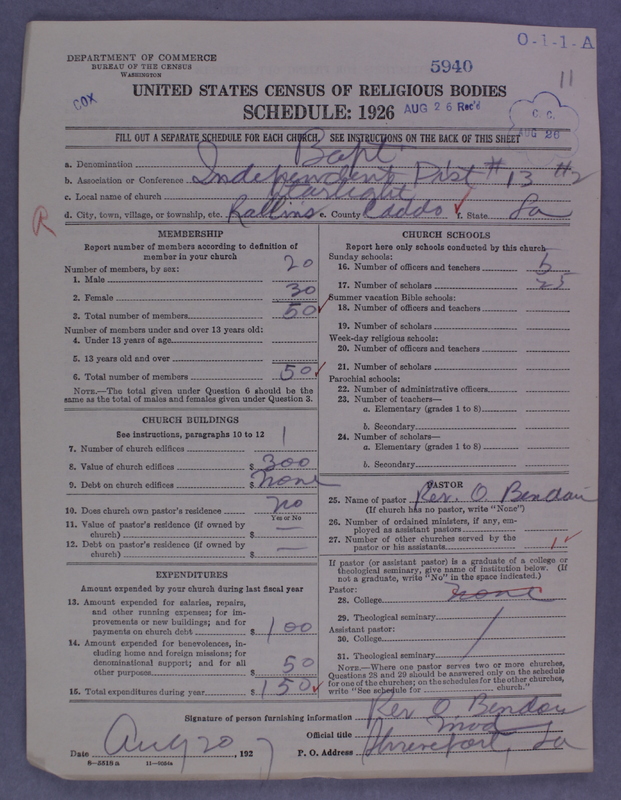 O-1-1-A
DEPARTMENT OF COMMERCE
BUREAU OF THE CENSUS
WASHINGTON
5940
11
UNITED STATES CENSUS OF RELIGIOUS BODIES
COX
SCHEDULE: 1926
AUG 26 Rec'd
C. C.
AUG 26
FILL OUT A SEPARATE SCHEDULE FOR EACH CHURCH. SEE INSTRUCTIONS ON THE BACK OF THIS SHEET
a. Denomination Bapt
b. Association or Conference Independent Dist #13 #2
c. Local name of church Starlight
d. City, town, village, or township, etc. Rallins e. County Caddo f. State La
R
MEMBERSHIP
Report number of members according to definition of
member in your church
Number of members, by sex:
1. Male 20
2. Female 30
3. Total number of members 50
Number of members under and over 13 years old:
4. Under 13 years of age
5. 13 years old and over
6. Total number of members 50
NOTE.—The total given under Question 6 should be the
same as the total of males and females given under Question 3.
CHURCH BUILDINGS
See instructions, paragraphs 10 to 12
7. Number of church edifices 1
8. Value of church edifices $ 300
9. Debt on church edifices $ None
10. Does church own pastor's residence? no
Yes or No
11. Value of pastor's residence (if owned by
church) $ —
12. Debt on pastor's residence (if owned by
church) $ —
EXPENDITURES
Amount expended by your church during last fiscal year
13. Amount expended for salaries, repairs,
and other running expenses; for im-
provements or new buildings; and for
payments on church debt $ 100
14. Amount expended for benevolences, in-
cluding home and foreign missions; for
denominational support; and for all
other purposes $ 50
15. Total expenditures during year $ 150
CHURCH SCHOOLS
Report here only schools conducted by this church
Sunday schools:
16. Number of officers and teachers
17. Number of scholars 25
Summer vacation Bible schools:
18. Number of officers and teachers
19. Number of scholars
Week-day religious schools:
20. Number of officers and teachers
21. Number of scholars
Parochial schools:
22. Number of administrative officers
23. Number of teachers—
a. Elementary (grades 1 to 8)
b. Secondary
24. Number of scholars—
a. Elementary (grades 1 to 8)
b. Secondary
PASTOR
25. Name of pastor Rev. O. Bendau
(If church has no pastor, write "None")
26. Number of ordained ministers, if any, em-
ployed as assistant pastors
27. Number of other churches served by the
pastor or his assistants 1
If pastor (or assistant pastor) is a graduate of a college or
theological seminary, give name of institution below. (If
not a graduate, write "No" in the space indicated.)
Pastor:
28. College none
29. Theological seminary
Assistant pastor:
30. College
31. Theological seminary
NOTE.—Where one pastor serves two or more churches,
Questions 28 and 29 should be answered only on the schedule
for one of the churches; on the schedules for the other churches,
write "See schedule for church."
Signature of person furnishing information Rev O Bendau
Official title Mod
Date Aug 20, 1927 P. O. Address Shreveport, La
8-5518 a 11-9056a